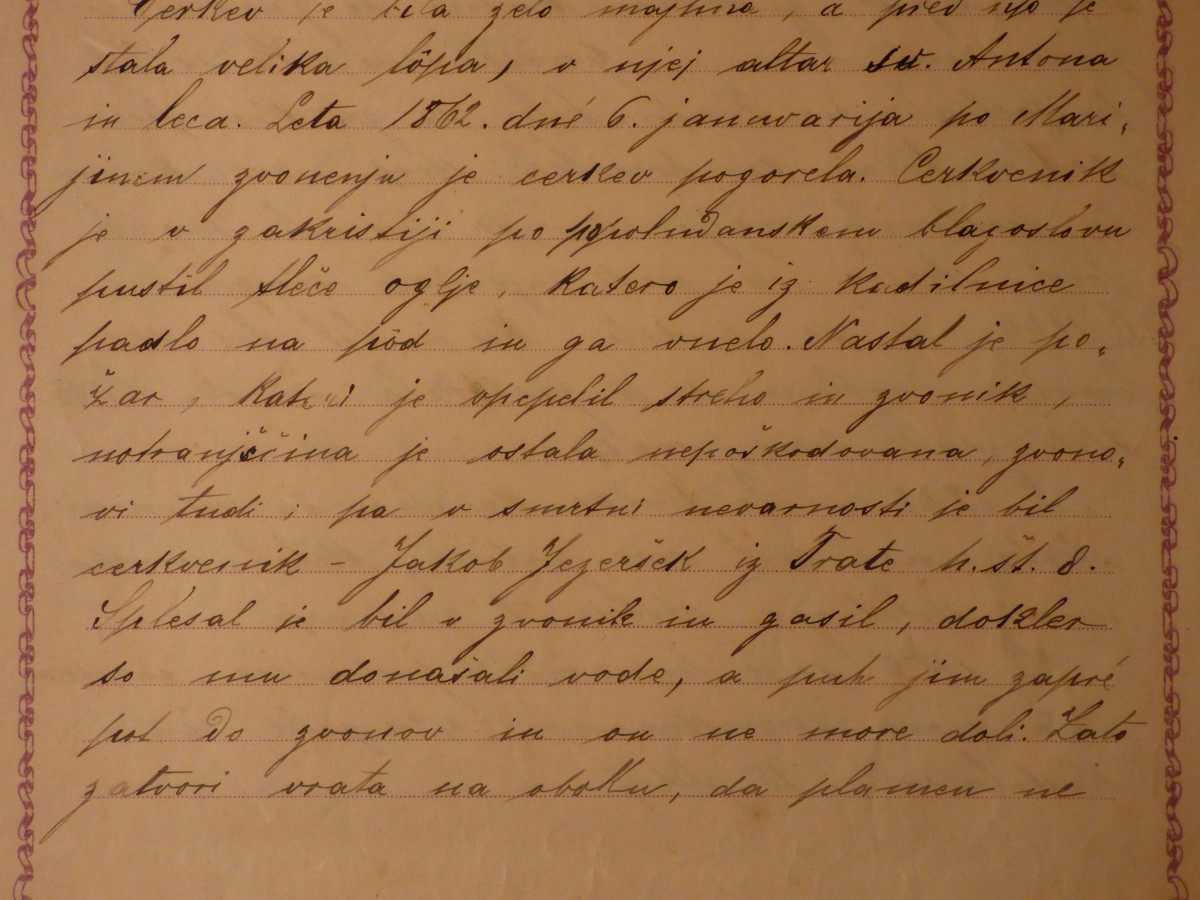 Cerkev je bila zelo majhna, a pred njo je
stala velika lôpa, v njej altar sv. Antona
in leca. Leta 1862. dné 6. januvarija po Mari„
jinem zvonenju je cerkev pogorela. Cerkvenik
je v zakristiji po popoludanskem blagoslovu
pustil tleče oglje, katero je iz kadilnice
padlo na pôd in ga vnelo. Nastal je po„
žar, kateri je vpepelil streho in zvonik,
notranjščina je ostala nepoškodovana, zvono„
vi tudi; pa v smrtni nevarnosti je bil
cerkvenik – Jakob Jezeršek iz Trate h. št. 8.
Splesal je bil v zvonik in gasil, dokler
so mu donašali vode, a puh jim zapré
pot do zvonov in on ne more doli. Zato
zatvori vrata na oboku, da plamen ne